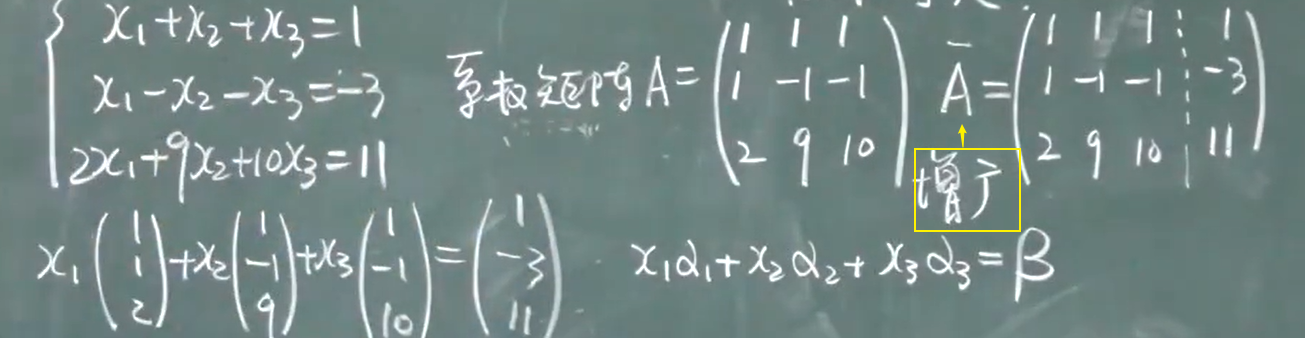 x₁+x₂+x₃=1
x₁-x₂-x₃=-3
2x₁+9x₂+10x₃=11
系数矩阵A=(1 1 1; 1 -1 -1; 2 9 10)
Ā=(1 1 1 ¦ 1; 1 -1 -1 ¦ -3; 2 9 10 ¦ 11)
增广
x₁(1; 1; 2)+x₂(1; -1; 9)+x₃(1; -1; 10)=(1; -3; 11)
x₁α₁+x₂α₂+x₃α₃=β